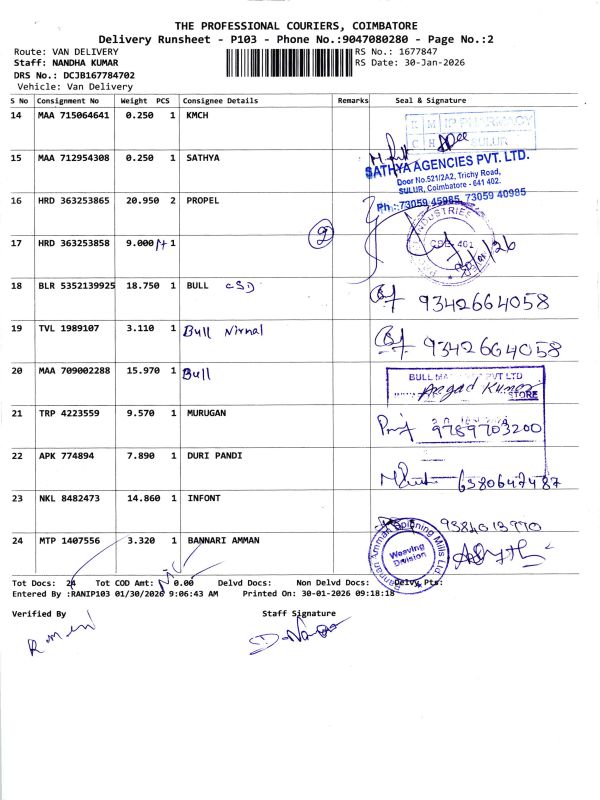 THE PROFESSIONAL COURIERS, COIMBATORE
Delivery Runsheet - P103 - Phone No.:9047080280 - Page No.:2
Route: VAN DELIVERY RS No.: 1677847
Staff: NANDHA KUMAR RS Date: 30-Jan-2026
DRS No.: DCJB167784702
Vehicle: Van Delivery
S No Consignment No Weight PCS Consignee Details Remarks Seal & Signature
14 MAA 715064641 0.250 1 KMCH
K M IP PHARMACY
C H SULUR
15 MAA 712954308 0.250 1 SATHYA
SATHYA AGENCIES PVT. LTD.
Door No.521/2A2, Trichy Road,
SULUR, Coimbatore - 641 402.
Ph.:73059 45985, 73059 40985
16 HRD 363253865 20.950 2 PROPEL
INDUSTRIES
2
17 HRD 363253858 9.000 1
18 BLR 5352139925 18.750 1 BULL CSD
9342664058
19 TVL 1989107 3.110 1 Bull Nirmal
9342664058
20 MAA 709002288 15.970 1 Bull
BULL PVT LTD
STORE
21 TRP 4223559 9.570 1 MURUGAN
9789703200
22 APK 774894 7.890 1 DURI PANDI
6380647487
23 NKL 8482473 14.860 1 INFONT
24 MTP 1407556 3.320 1 BANNARI AMMAN
Bannari Amman Spinning Mills Ltd
Weaving
Division
Tot Docs: 24 Tot COD Amt: 0.00 Delvd Docs: Non Delvd Docs: Delvy Pts:
Entered By :RANIP103 01/30/2026 9:06:43 AM Printed On: 30-01-2026 09:18:18
Verified By Staff Signature